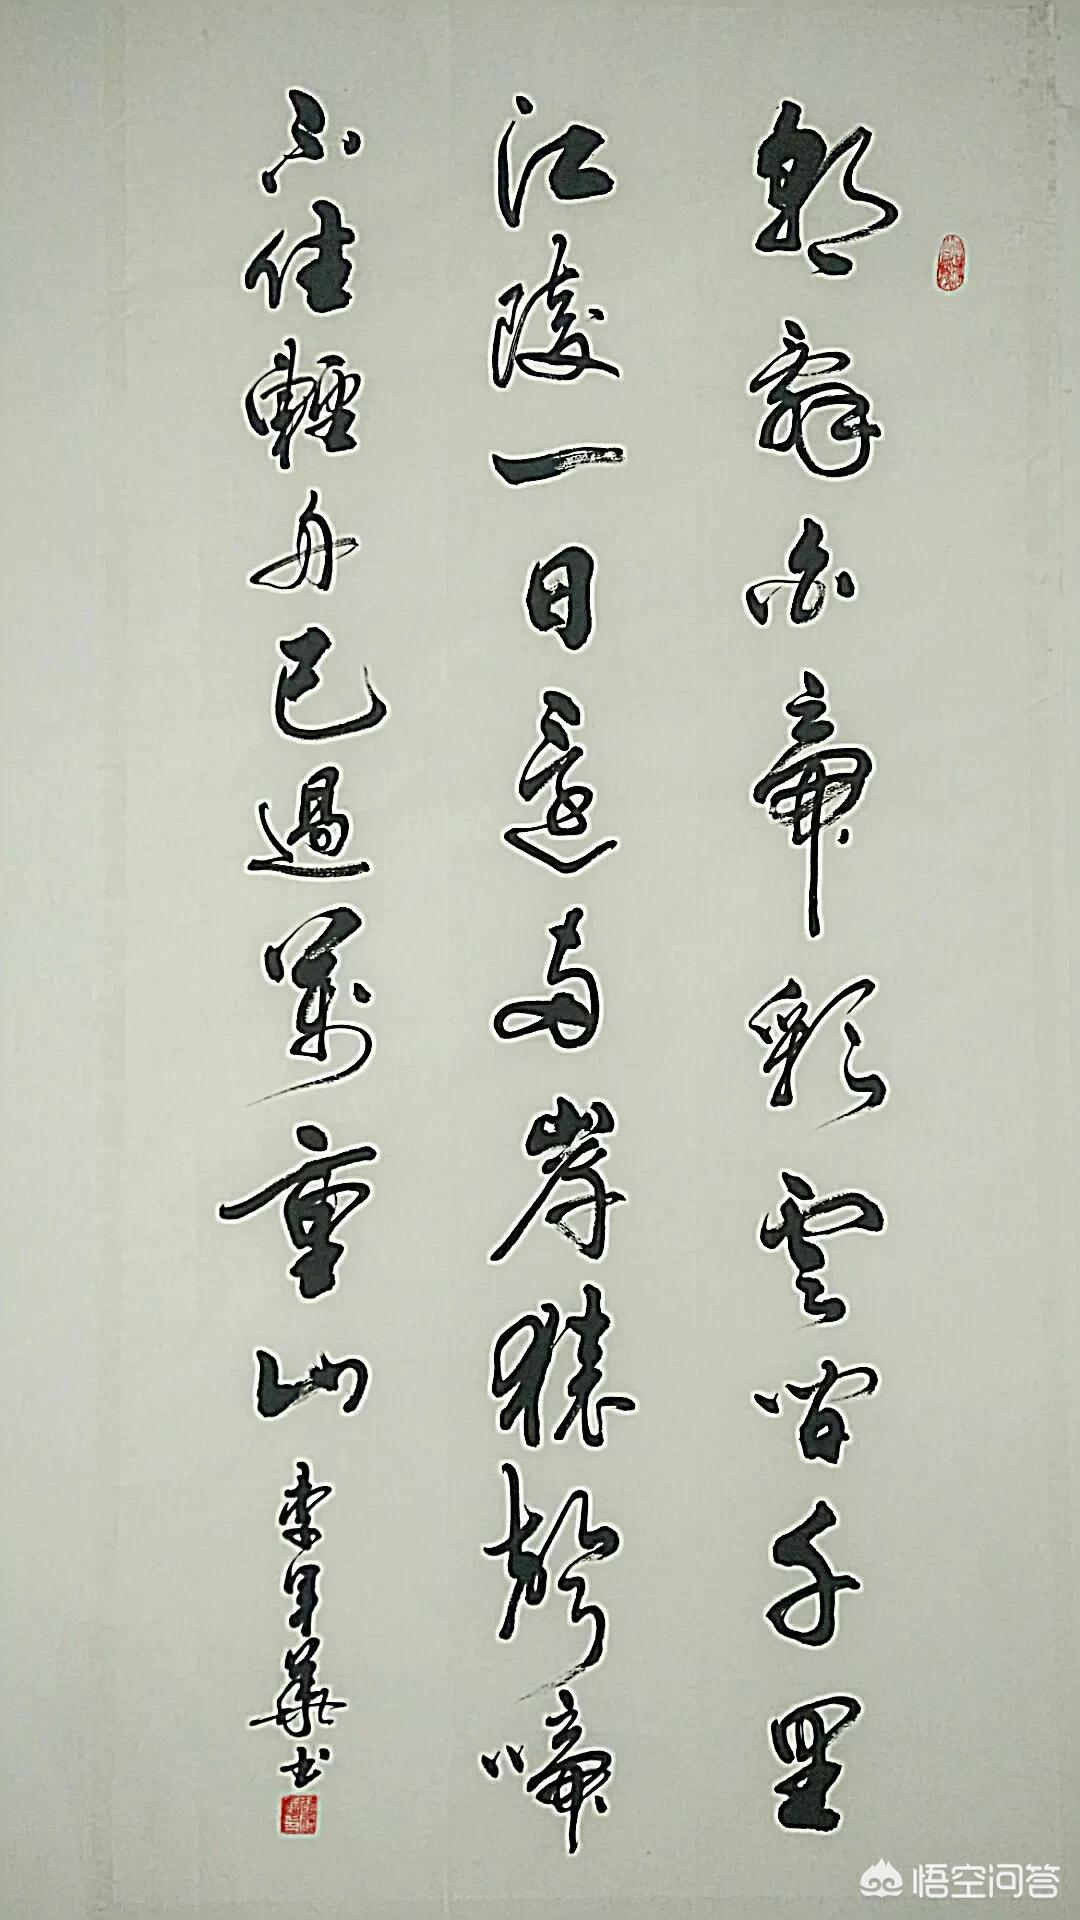 朝辭白帝彩雲間千里
江陵一日還兩岸猿聲啼
不住輕舟已過萬重山 李軍華书
悟空问答